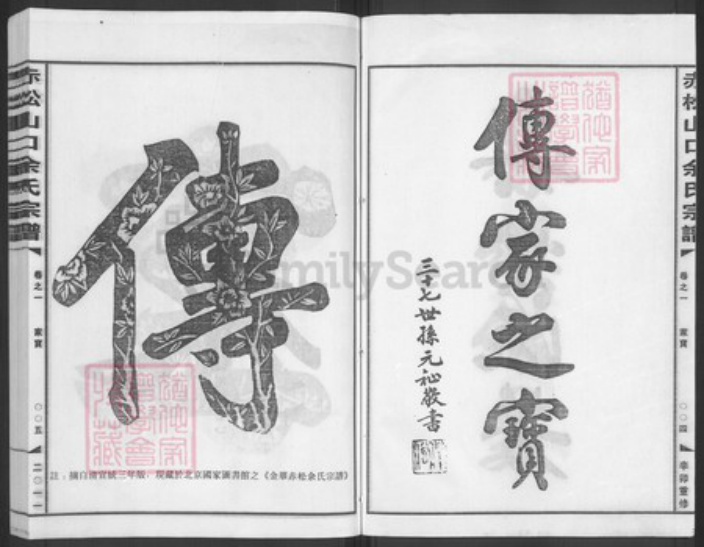 赤松山口余氏宗譜
卷之一
家寶
〇〇四
辛卯重修
傳家之寶
三十七世孫元祕敬書
傳
註：摘自清宣統三年版，現藏於北京國家圖書館之《金華赤松余氏宗譜》
赤松山口余氏宗譜
卷之一
家寶
〇〇五
二〇一一
FamilySearch